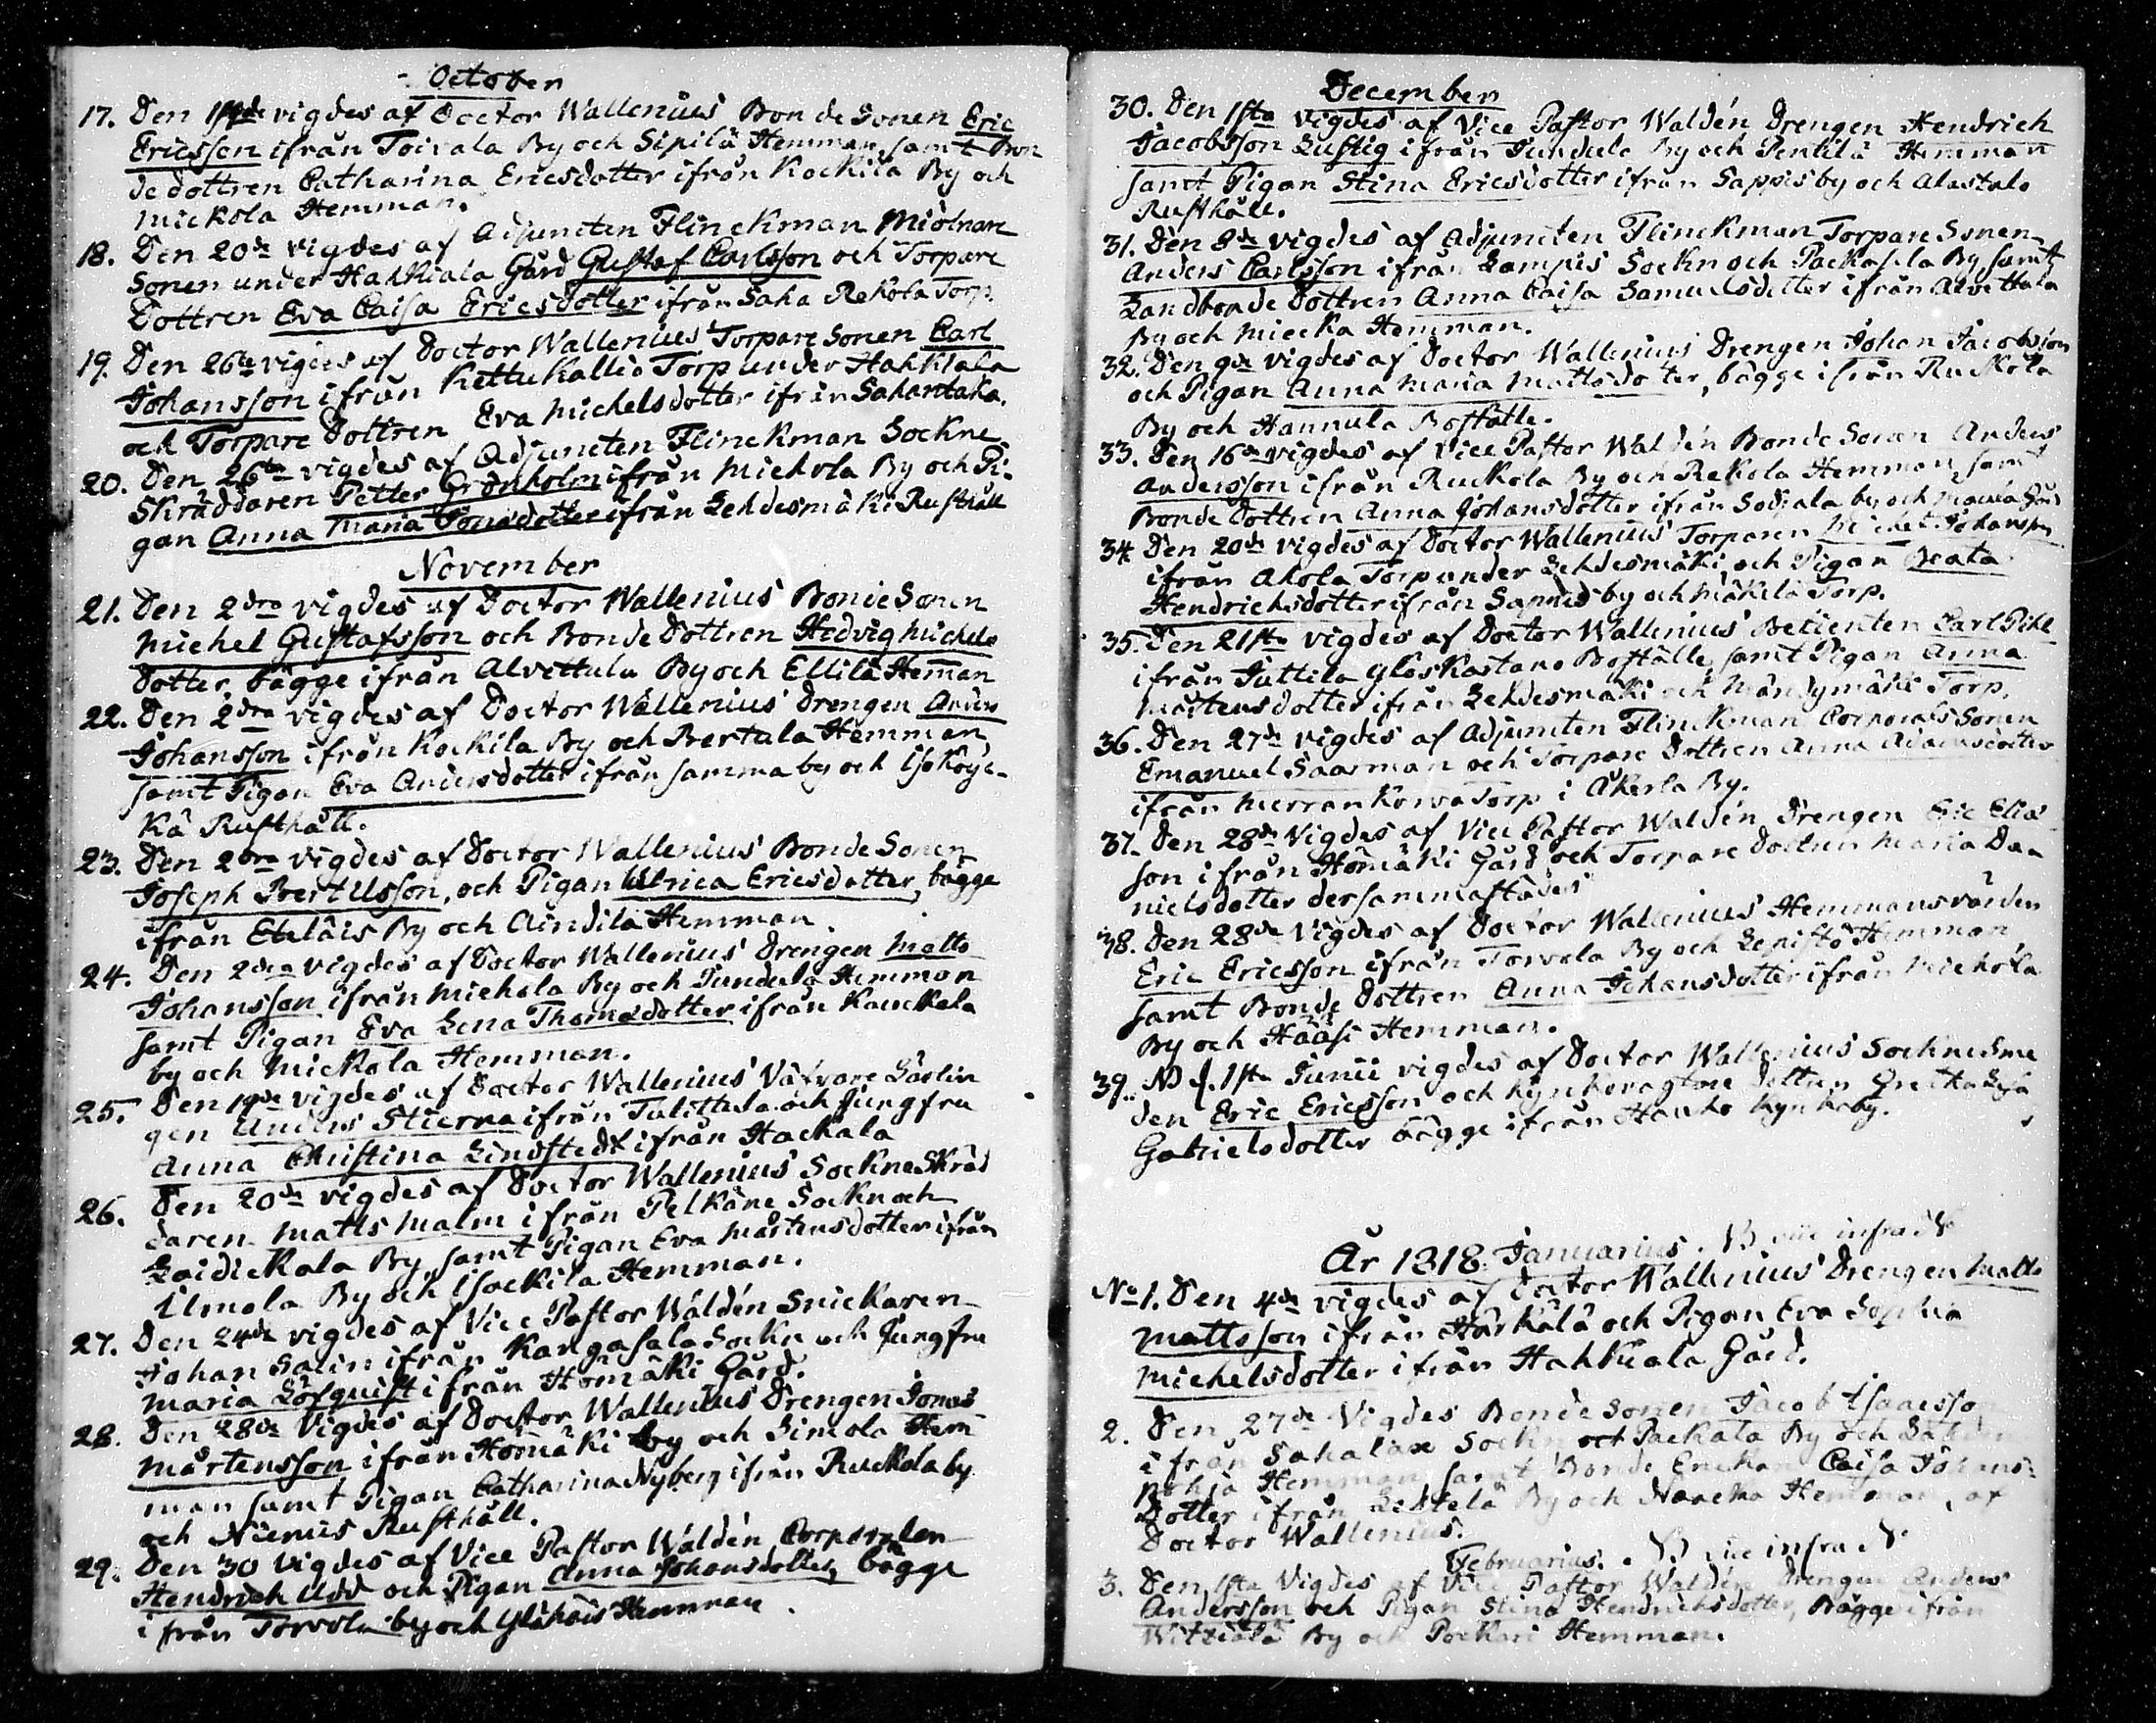 October
17. Den 19de vigdes af Doctor Wallenius Bonde Sonen Eric
Ericsson ifrån Toivala By och Sipilä Hemman, samt Bon
dedottren Catharina Ericsdotter ifrån Kockila By och
Mickola Hemman.
18. Den 20de vigdes af Adjuncten Flinckman Miölnare
Sonen under Hahkiala Gård Gustaf Carlsson och Torpare
Dottren Eva Caisa Ericsdotter ifrån Saha Rekola Torp.
19. Den 26te vigdes af Doctor Wallenius Torpare Sonen Carl
Johansson ifrån Kettukallio Torp under Hahkiala
och Torpare Dottren Eva Michelsdotter ifrån Sahantaka.
20. Den 26te vigdes af Adjuncten Flinckman Sockne
Skräddaren Petter Grönholm ifrån Mickola By och Pi-
gan Anna Maria Tomasdotter ifrån Lehdesmäki Rusthåll
November
21. Den 2dra vigdes af Doctor Wallenius Bonde Sonen
Michel Gustafsson och Bonde Dottren Hedvig Michels
Dotter, bägge ifrån Alvettula By och Ellilä Heman
22. Den 2dra vigdes af Doctor Wallenius Drengen Anders
Johansson ifrån Kockila By och Bertula Hemman
samt Pigan Eva Andersdotter ifrån samma by och Isoköyc-
kä Rusthåll.
23. Den 2dra vigdes af Doctor Wallenius Bonde Sonen
Joseph Bertilsson, och Pigan Ulrica Ericsdotter, bägge
ifrån Eteläis By och Aindila Hemman
24. Den 2dra vigdes af Doctor Wallenius Drengen Matts
Johansson ifrån Mickola By och Jundula Hemman
samt Pigan Eva Lena Thomasdotter ifrån Kauckola
by och Mickola Hemman.
25. Den 19de vigdes af Doctor Wallenius Väfvare Gärlin
gen Anders Stierna ifrån Tulittula och Jungfru
Anna Christina Lindstedt ifrån Hackala
26. Den 20de vigdes af Doctor Wallenius Sockne Skräd
daren Matts Malm ifrån Pelkäne Sockn och
Laidickala By, samt Pigan Eva Mårtensdotter ifrån
Ilmola By och Isockila Hemman.
27. Den 24de vigdes af Vice Pastor Waldén Snickaren
Johan Salin ifrån Kangasala Sockn och Jungfru
Maria Löfquist ifrån Hömäki Gård.
28. Den 28de Vigdes af Doctor Wallenius Drengen Jonas
Mårtensson ifrån Hömäki by och Simola Hem
man samt Pigan Catharina Nyberg ifrån Ruckola by
och Niemis Rusthåll.
29. Den 30 vigdes af Vice Pastor Waldén Corporalen
Hendrich Udd och Pigan Anna Johansdotter, bägge
ifrån Torvola by och Ylähäis Hemman.
December
30. Den 1sta vigdes af Vice Pastor Waldén Drengen Hendrich
Jacobsson Lustig ifrån Jundula By och Pentilä Hemman
samt Pigan Stina Ericsdotter ifrån Sappis by och Alastalo
Rusthåll.
31. Den 8de vigdes af Adjuncten Flinckman Torpare Sonen
Anders Carlsson ifrån Lampis Sockn och Packasela By samt
Landbonde Dottren Anna Caisa Samuelsdotter ifrån Alvettula
By och Miecka Hemman.
32. Den 9de vigdes af Doctor Wallenius Drengen Johan Jacobsson
och Pigan Anna Maria Mattsdotter, bägge ifrån Ruckola
By och Hannula Boställe.
33. Den 16de vigdes af Vice Pastor Waldén Bonde Sonen Anders
Andersson ifrån Ruckola By och Rekola Hemman, samt
Bonde Dottren Anna Johansdotter ifrån Sodjala by och Maula Gård
34. Den 20de vigdes af Doctor Wallenius Torparen Michel Johansson
ifrån Ahola Torp under Lehdesmäki, och Pigan Beata
Hendrichsdotter ifrån Sannis by och Mäkelä Torp.
35. Den 21sta vigdes af Doctor Wallenius Betienten Carl Pihl
ifrån Juttila Yloskartano Boställe, samt Pigan Anna
Mårtensdotter ifrån Lehdesmäki och Mändymäki Torp.
36. Den 27de vigdes af Adjuncten Flinckman Corporals Sonen
Emanuel Saarman och Torpare Dottren Anna Adamsdotter
ifrån Herran Korva Torp i Åkerla By.
37. Den 28de Vigdes af Vice Pastor Waldén Drengen Eric Elias
son ifrån Hömäki Gård och Torpare Dottren Maria Da-
nielsdotter dersammastädes
38. Den 28de Vigdes af Doctor Wallenius Hemmansvärden
Eric Ericsson ifrån Torvola By och Lepistö Hemman
samt Bonde Dottren Anna Johansdotter ifrån Mickola
By och Hääsi Hemman.
39. NB d. 1sta Junii vigdes af Doctor Wallenius Sockne Sme
den Eric Ericsson och Kyrkovagtare Dottren Greta Lisa
Gabrielsdotter bägge ifrån Hauho Kyrkoby.
År 1818 Januarius. NB vice infra N
No 1. Den 4de vigdes af Doctor Wallenius Drengen Matts
Mattsson ifrån Härkälä och Pigan Eva Sophia
Michelsdotter ifrån Hahkiala Gård.
2. Den 27de Vigdes Bondesonen Jacob Isaacsson
ifrån Sahalax Sockn och Packala By och
Pohja Hemman, samt Bonde Enckan Caisa Johans
Dotter ifrån Lehtelä By och Hemman, af
Doctor Wallenius.
Februarius. NB vice infra N
3. Den 1sta Vigdes af Vice Pastor Waldén Drengen Anders
Andersson och Pigan Stina Hendrichsdotter, Bägge ifrån
Witziälä By och Pockari Hemman.